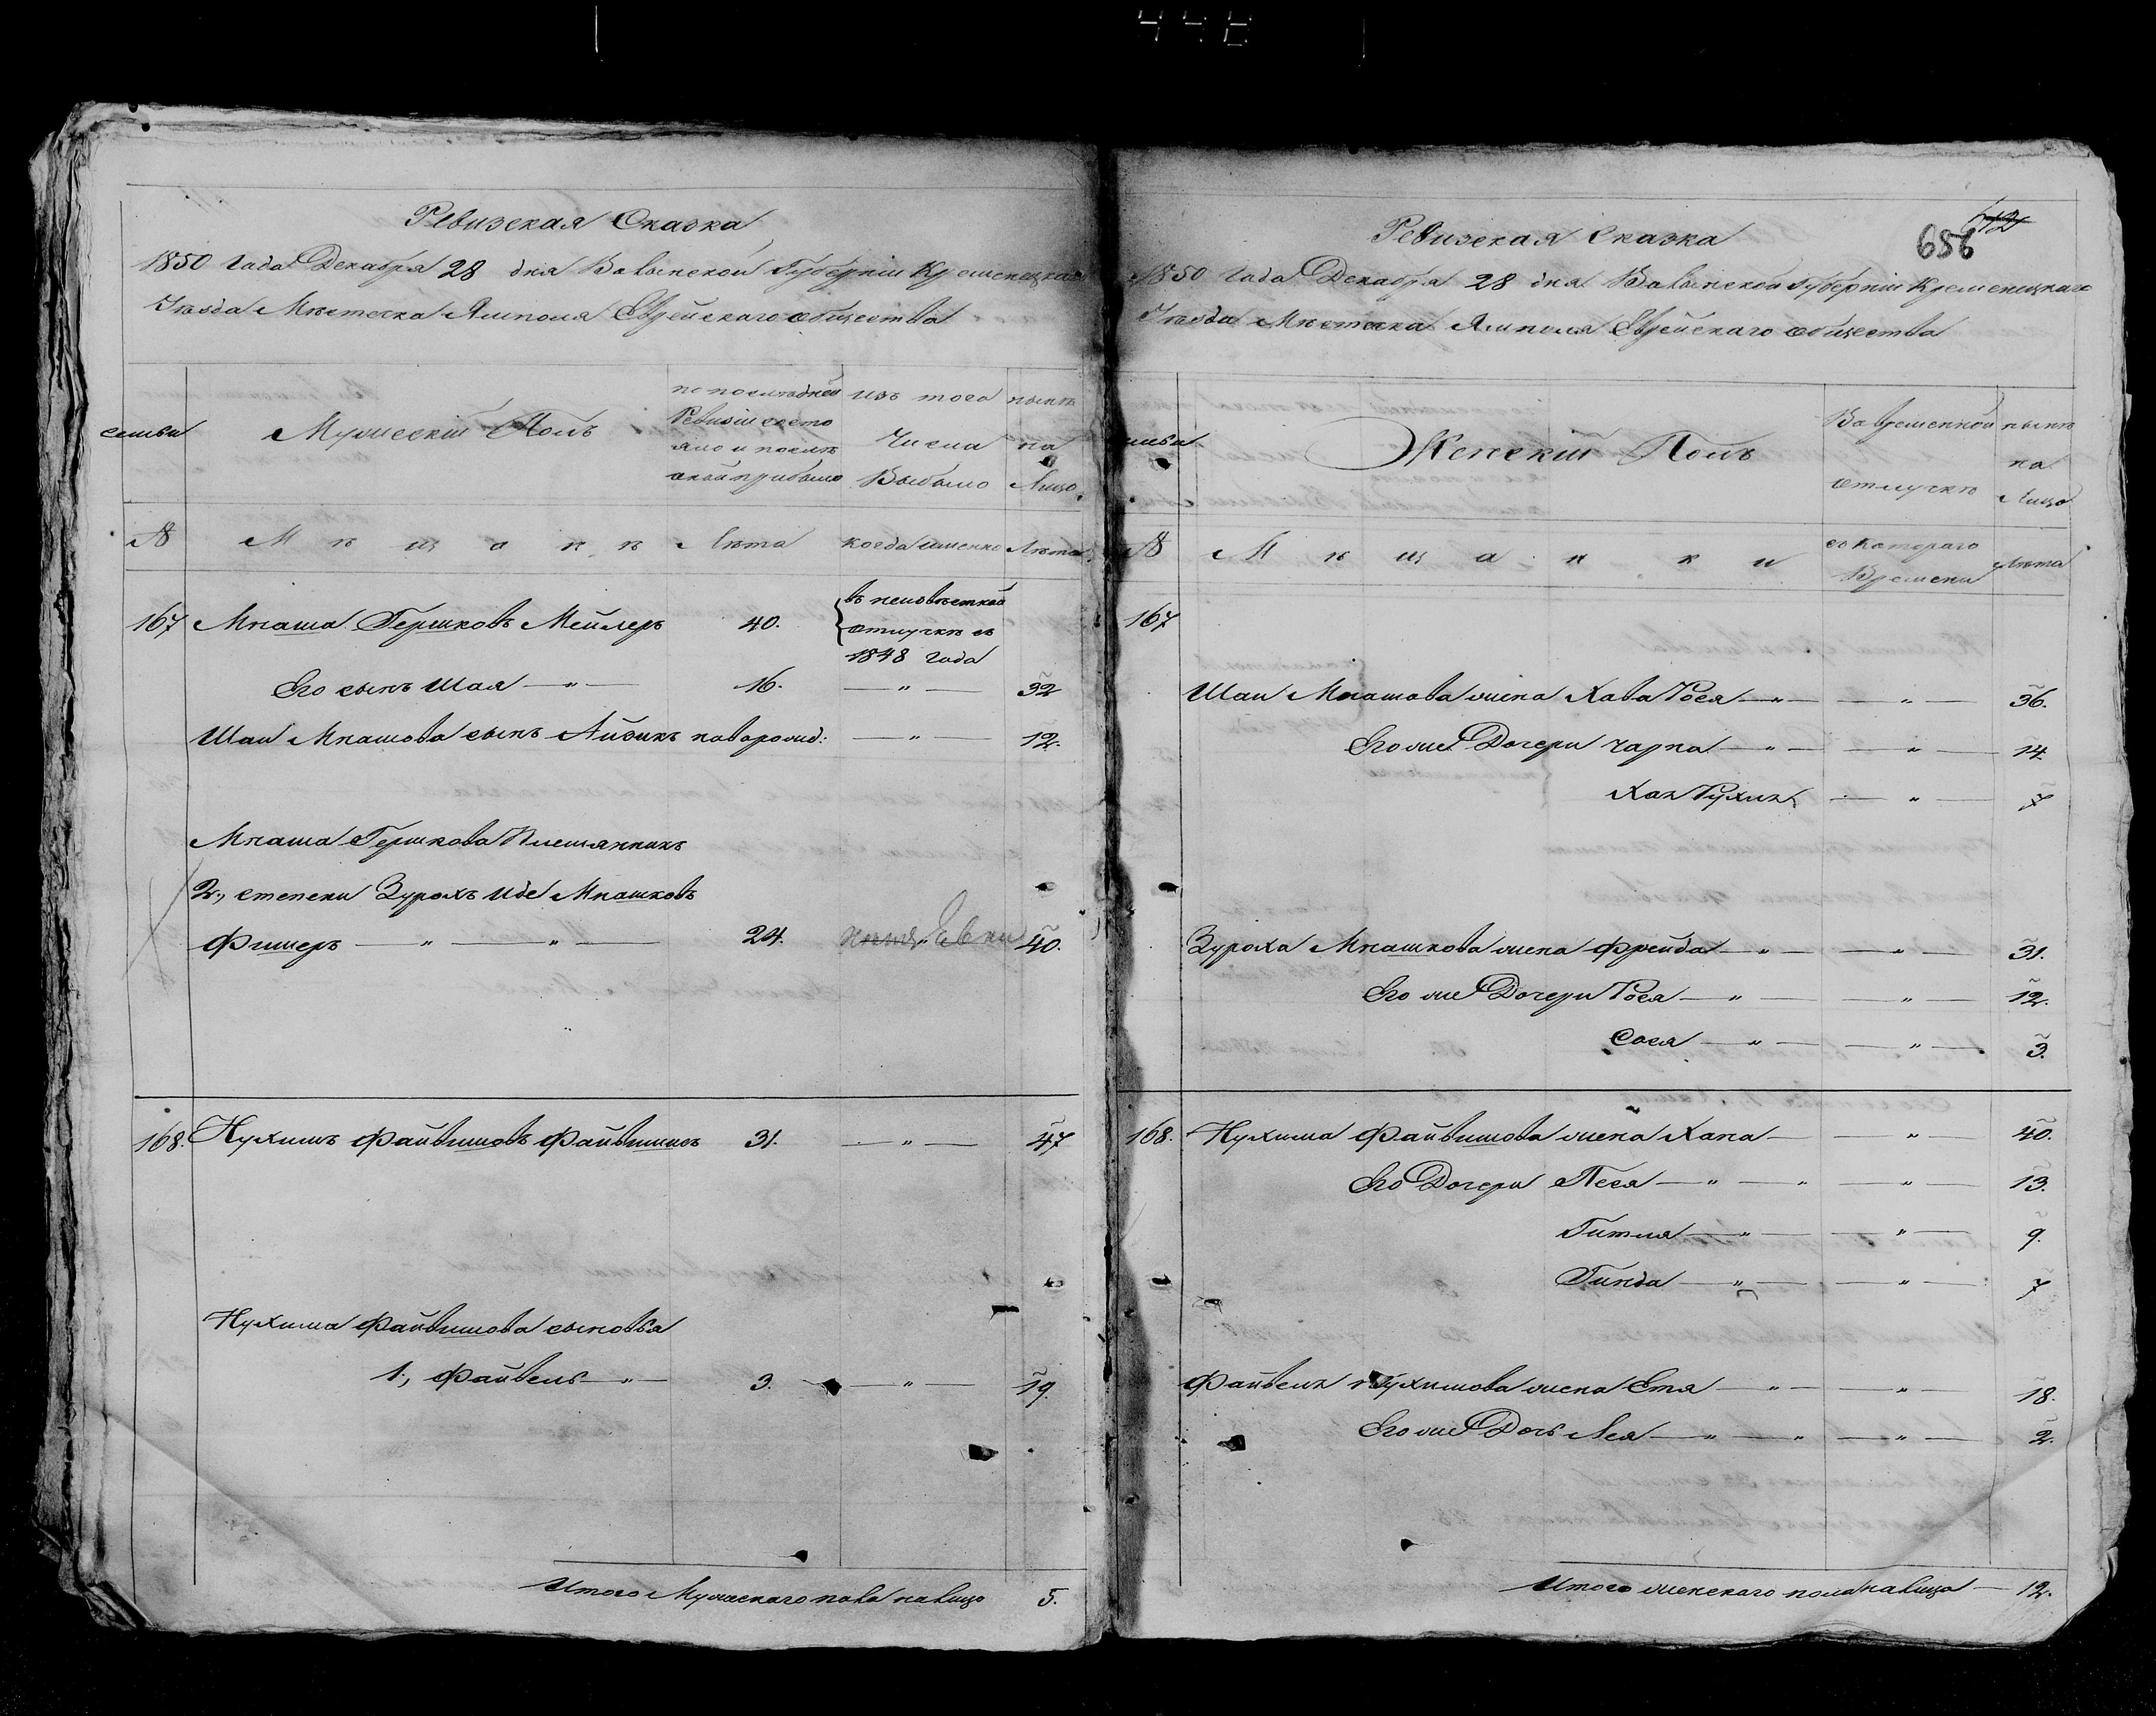 448
Ревизская Сказка
1850 Года Декабря 28 дня Волынской Губерніи Кременецкаго
Уѣзда Мѣстечка Ямполя Еврейскаго общества
семьи
Мужескій Полъ
по послѣдней
Ревизіи состо
яло и послѣ
оной прибыло
изъ того
Числа
Выбыло
нынѣ
на
Лицо
№
Мѣщанѣ
Лѣта
когда именно
Лѣта
167 Мнаша Гершковъ Мейлеръ 40. въ неизвѣстной
отлучкѣ съ
1848 года
Его сынъ Шая — „ — 16. — „ — 32
Шаи Мнашова сынъ Айзикъ новорожд: — „ — 12.
Мнаша Гершкова Племянникъ
2., степени Зурохъ Иде Мнашковъ
Фишеръ — „ — „ — 24. 40.
168. Нухимъ Файвишовъ Файвишисъ 31. — „ — 47
Нухима Файвишова сыновья
1., Файвель — „ — 3. — „ — 19.
Итого Мужескаго пола налицо 5.
Ревизская Сказка
656
1850 Года Декабря 28 дня Волынской Губерніи Кременецкаго
Уѣзда Мѣстечка Ямполя Еврейскаго общества
Женскій Полъ
Во временной
отлучкѣ
нынѣ
на
Лицо
№
Мѣщанки
съ котораго
Времени
Лѣта
167
Шаи Мнашова жена Хава Рося — „ — — „ — 36.
Его же Дочери Чарна — „ — „ — 14
Хая Рухля — „ — 7
Зуроха Мнашкова жена Фрейда — „ — — „ — 31.
Его же Дочери Рося — „ — — „ — 12.
Сося — „ — — „ — 3.
168. Нухима Файвишова жена Хана — — „ — 40.
Его Дочери Песя — „ — „ — „ — 13.
Гитля — „ — — „ — 9.
Гинда — „ — — „ — 7
Файвеля Нухимова жена Етя — „ — — „ — 18.
Его же Дочь Лея — „ — „ — „ — 2.
Итого женскаго пола налицо — 12.